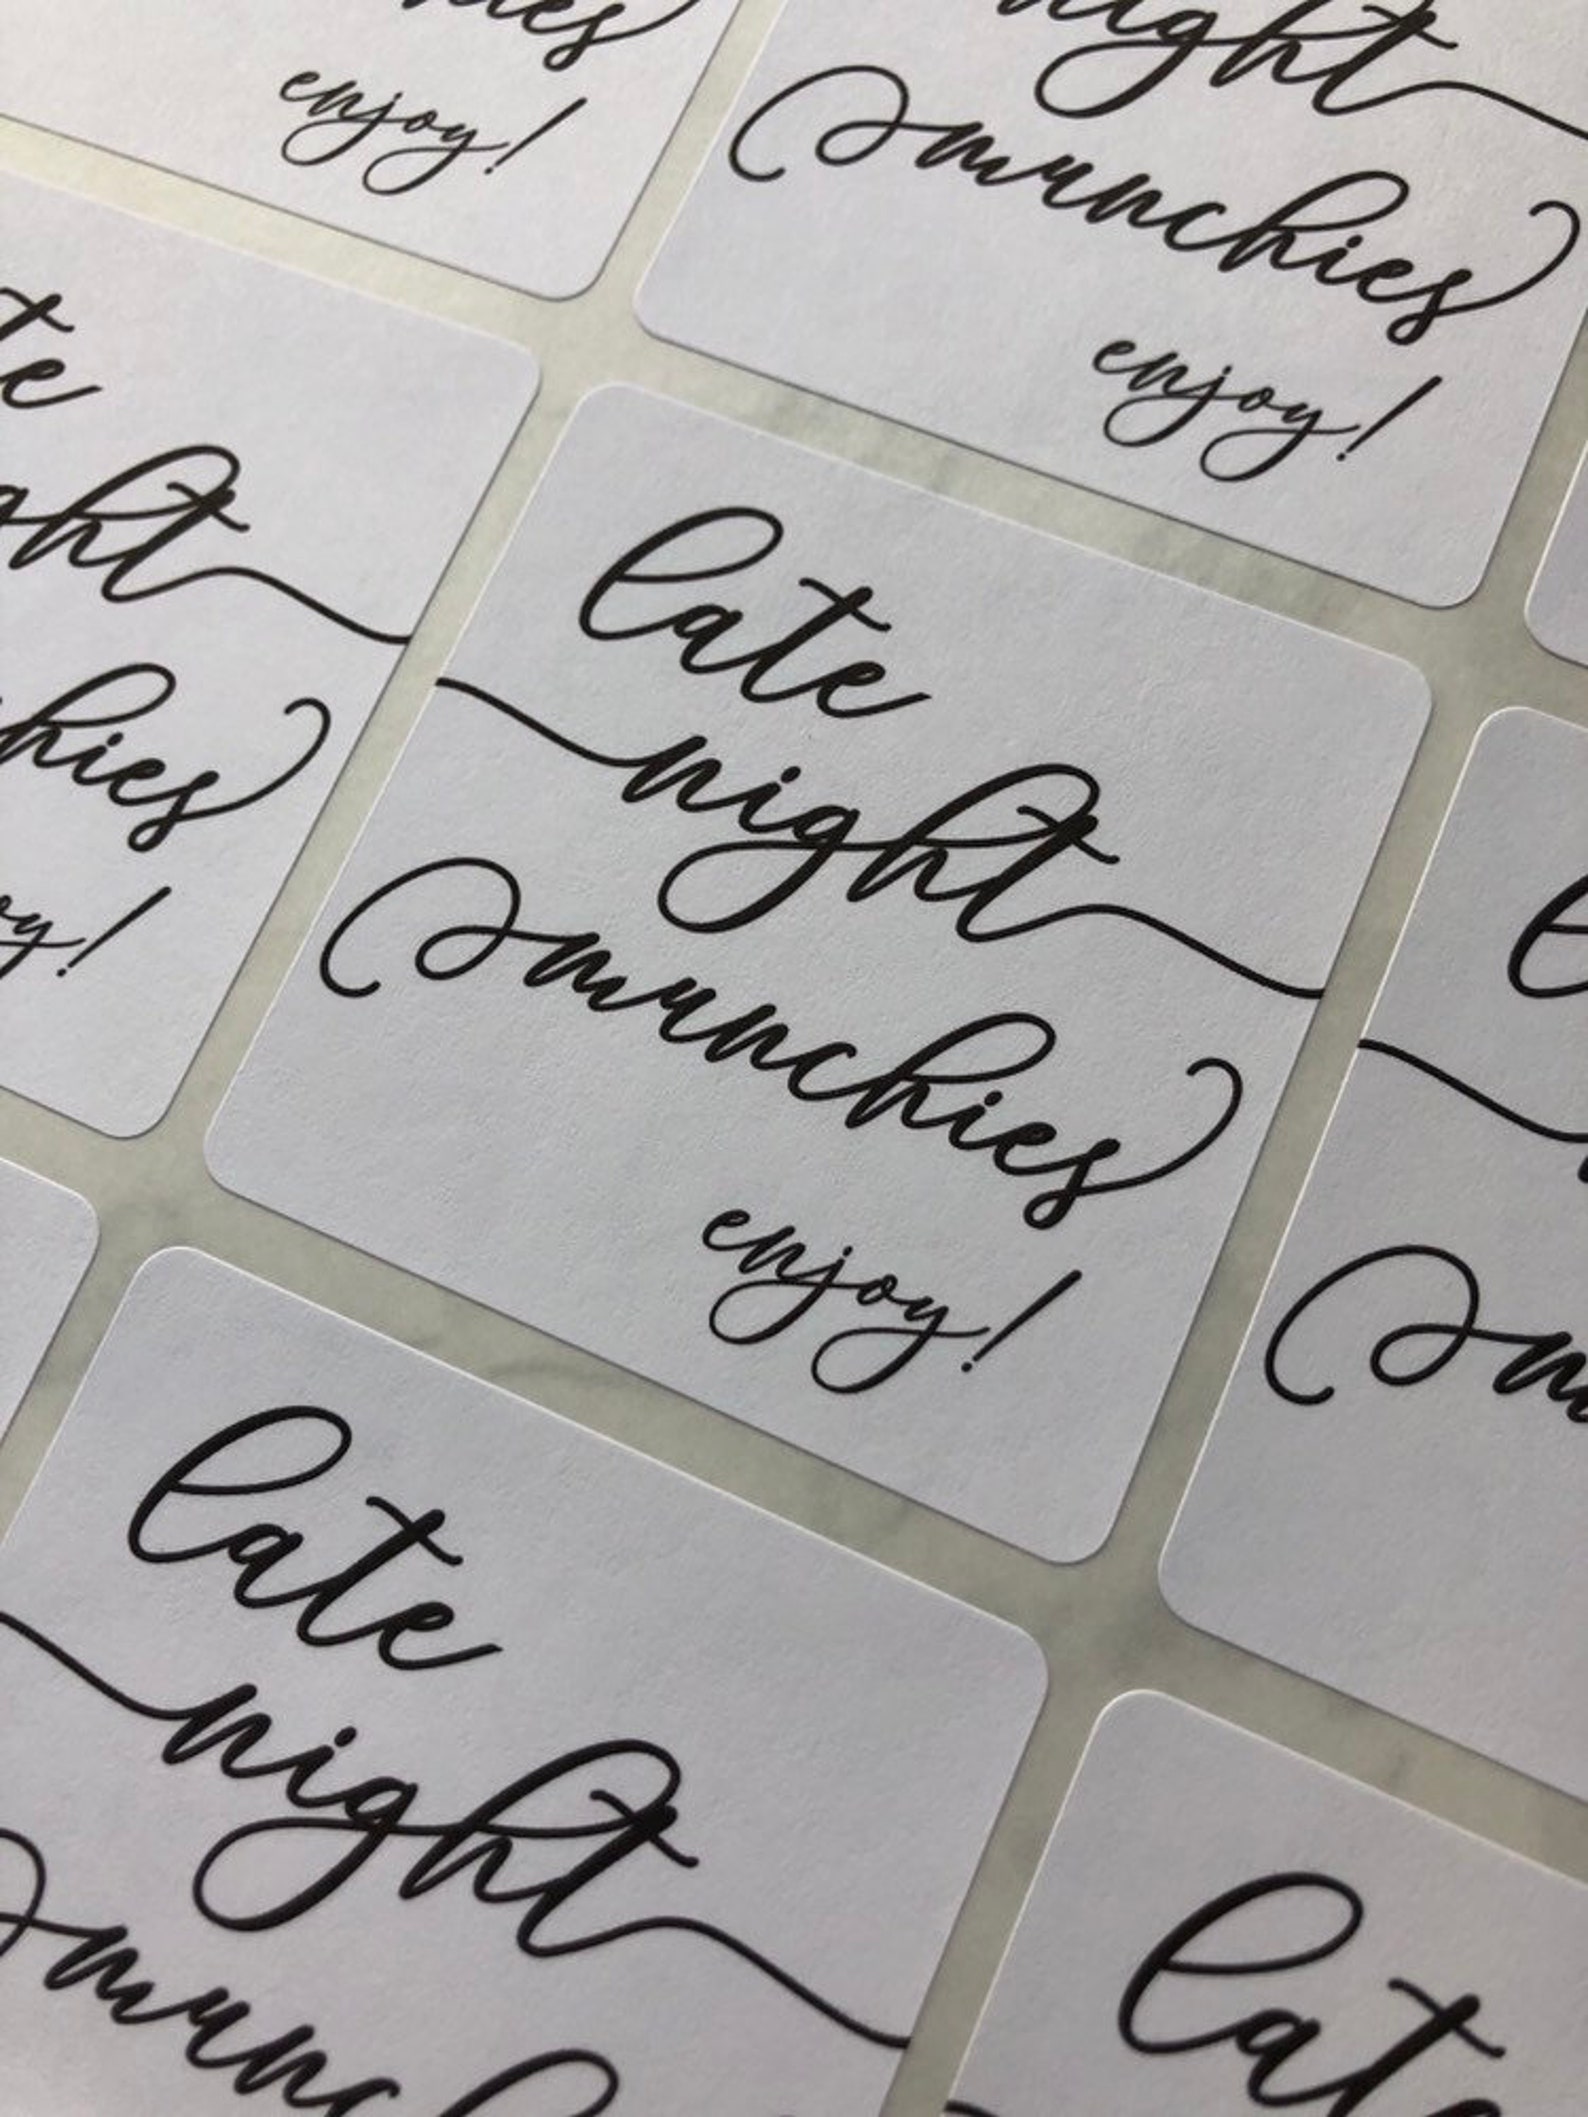 enjoy!
night
munchies
enjoy!
late
night
munchies
enjoy!
late
night
late